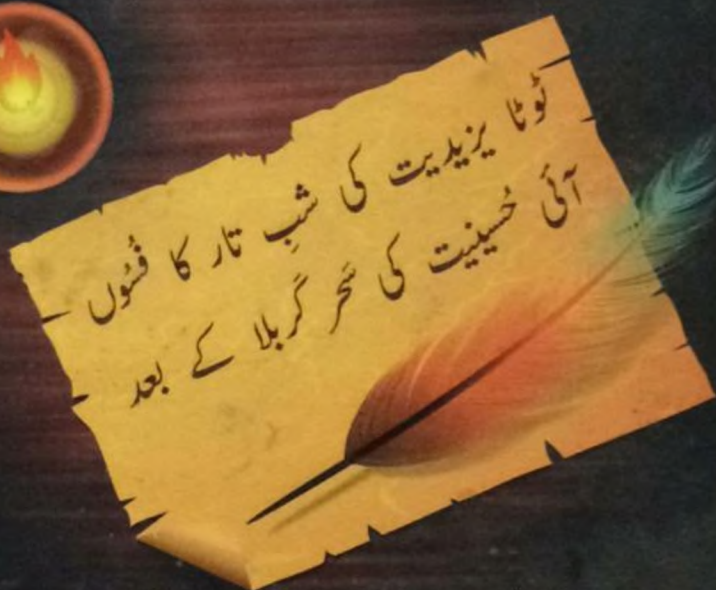 ٹوٹا یزیدیت کی شبِ تار کا فُسُوں
آئی حُسینیت کی سَحر کَربلا کے بعد